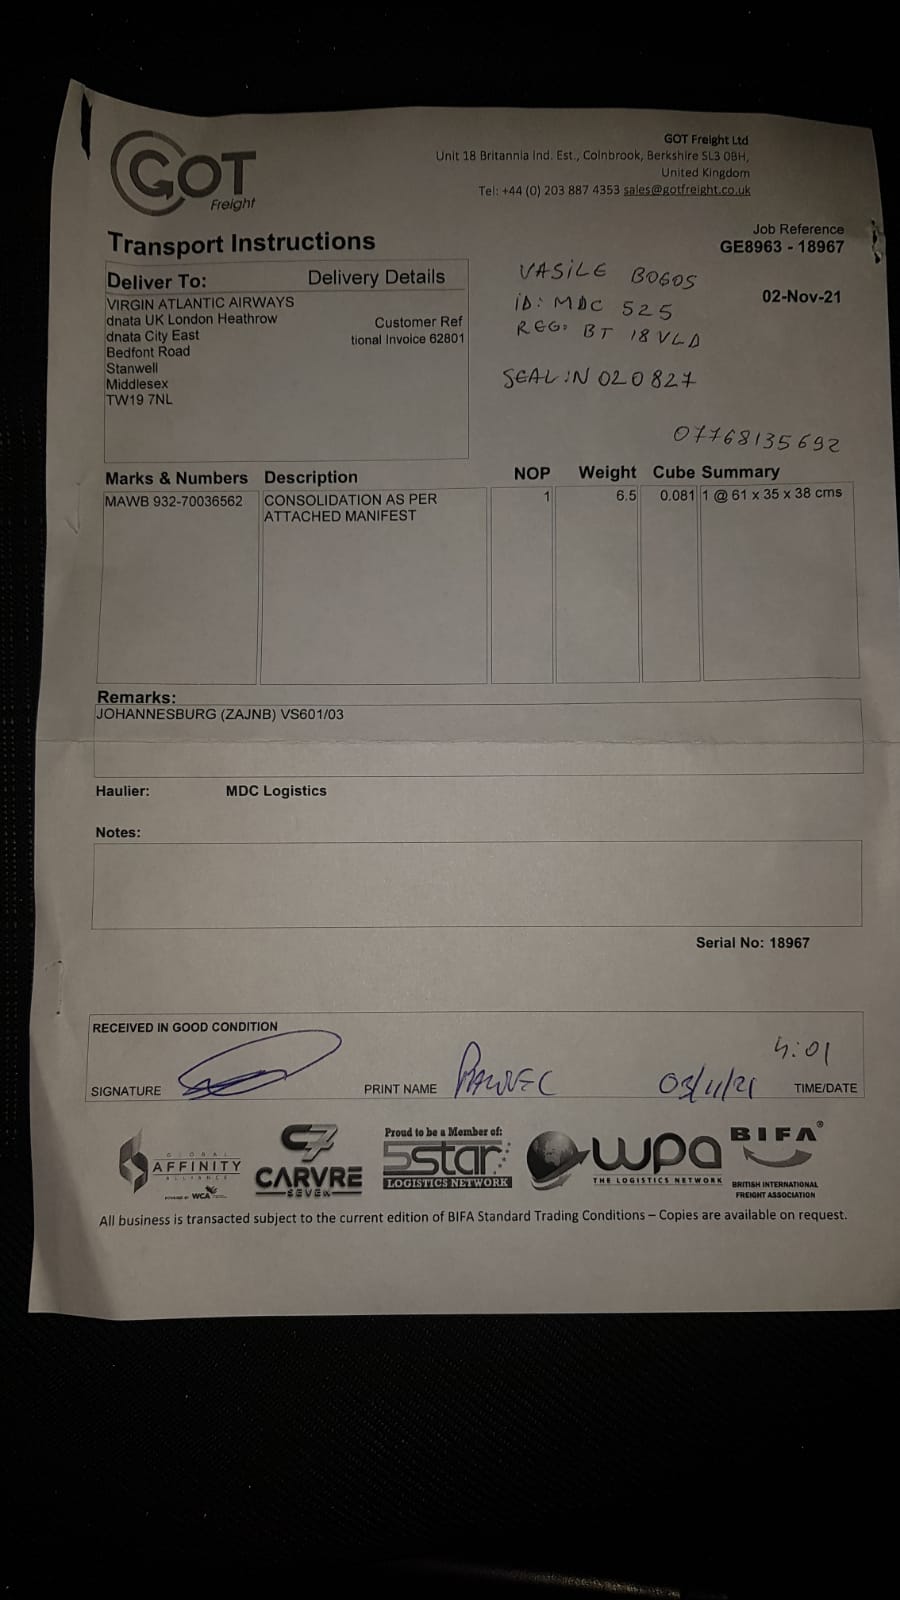 GOT
Freight
GOT Freight Ltd
Unit 18 Britannia Ind. Est., Colnbrook, Berkshire SL3 0BH,
United Kingdom
Tel: +44 (0) 203 887 4353 sales@gotfreight.co.uk
Transport Instructions
Job Reference
GE8963 - 18967
02-Nov-21
Deliver To: Delivery Details
VIRGIN ATLANTIC AIRWAYS
dnata UK London Heathrow
dnata City East
Bedfont Road
Stanwell
Middlesex
TW19 7NL
Customer Ref
tional Invoice 62801
VASILE BOGOS
ID: MDC 525
REG: BT 18 VLD
SEAL:N 020827
07768135692
Marks & Numbers Description NOP Weight Cube Summary
MAWB 932-70036562 CONSOLIDATION AS PER 1 6.5 0.081 1 @ 61 x 35 x 38 cms
ATTACHED MANIFEST
Remarks:
JOHANNESBURG (ZAJNB) VS601/03
Haulier: MDC Logistics
Notes:
Serial No: 18967
RECEIVED IN GOOD CONDITION
4:01
SIGNATURE PRINT NAME 03/11/21 TIME/DATE
GLOBAL
AFFINITY
ALLIANCE
POWERED BY WCA
C7
CARVRE
SEVEN
Proud to be a Member of:
5star
LOGISTICS NETWORK
wpa
THE LOGISTICS NETWORK
BIFA®
BRITISH INTERNATIONAL
FREIGHT ASSOCIATION
All business is transacted subject to the current edition of BIFA Standard Trading Conditions – Copies are available on request.